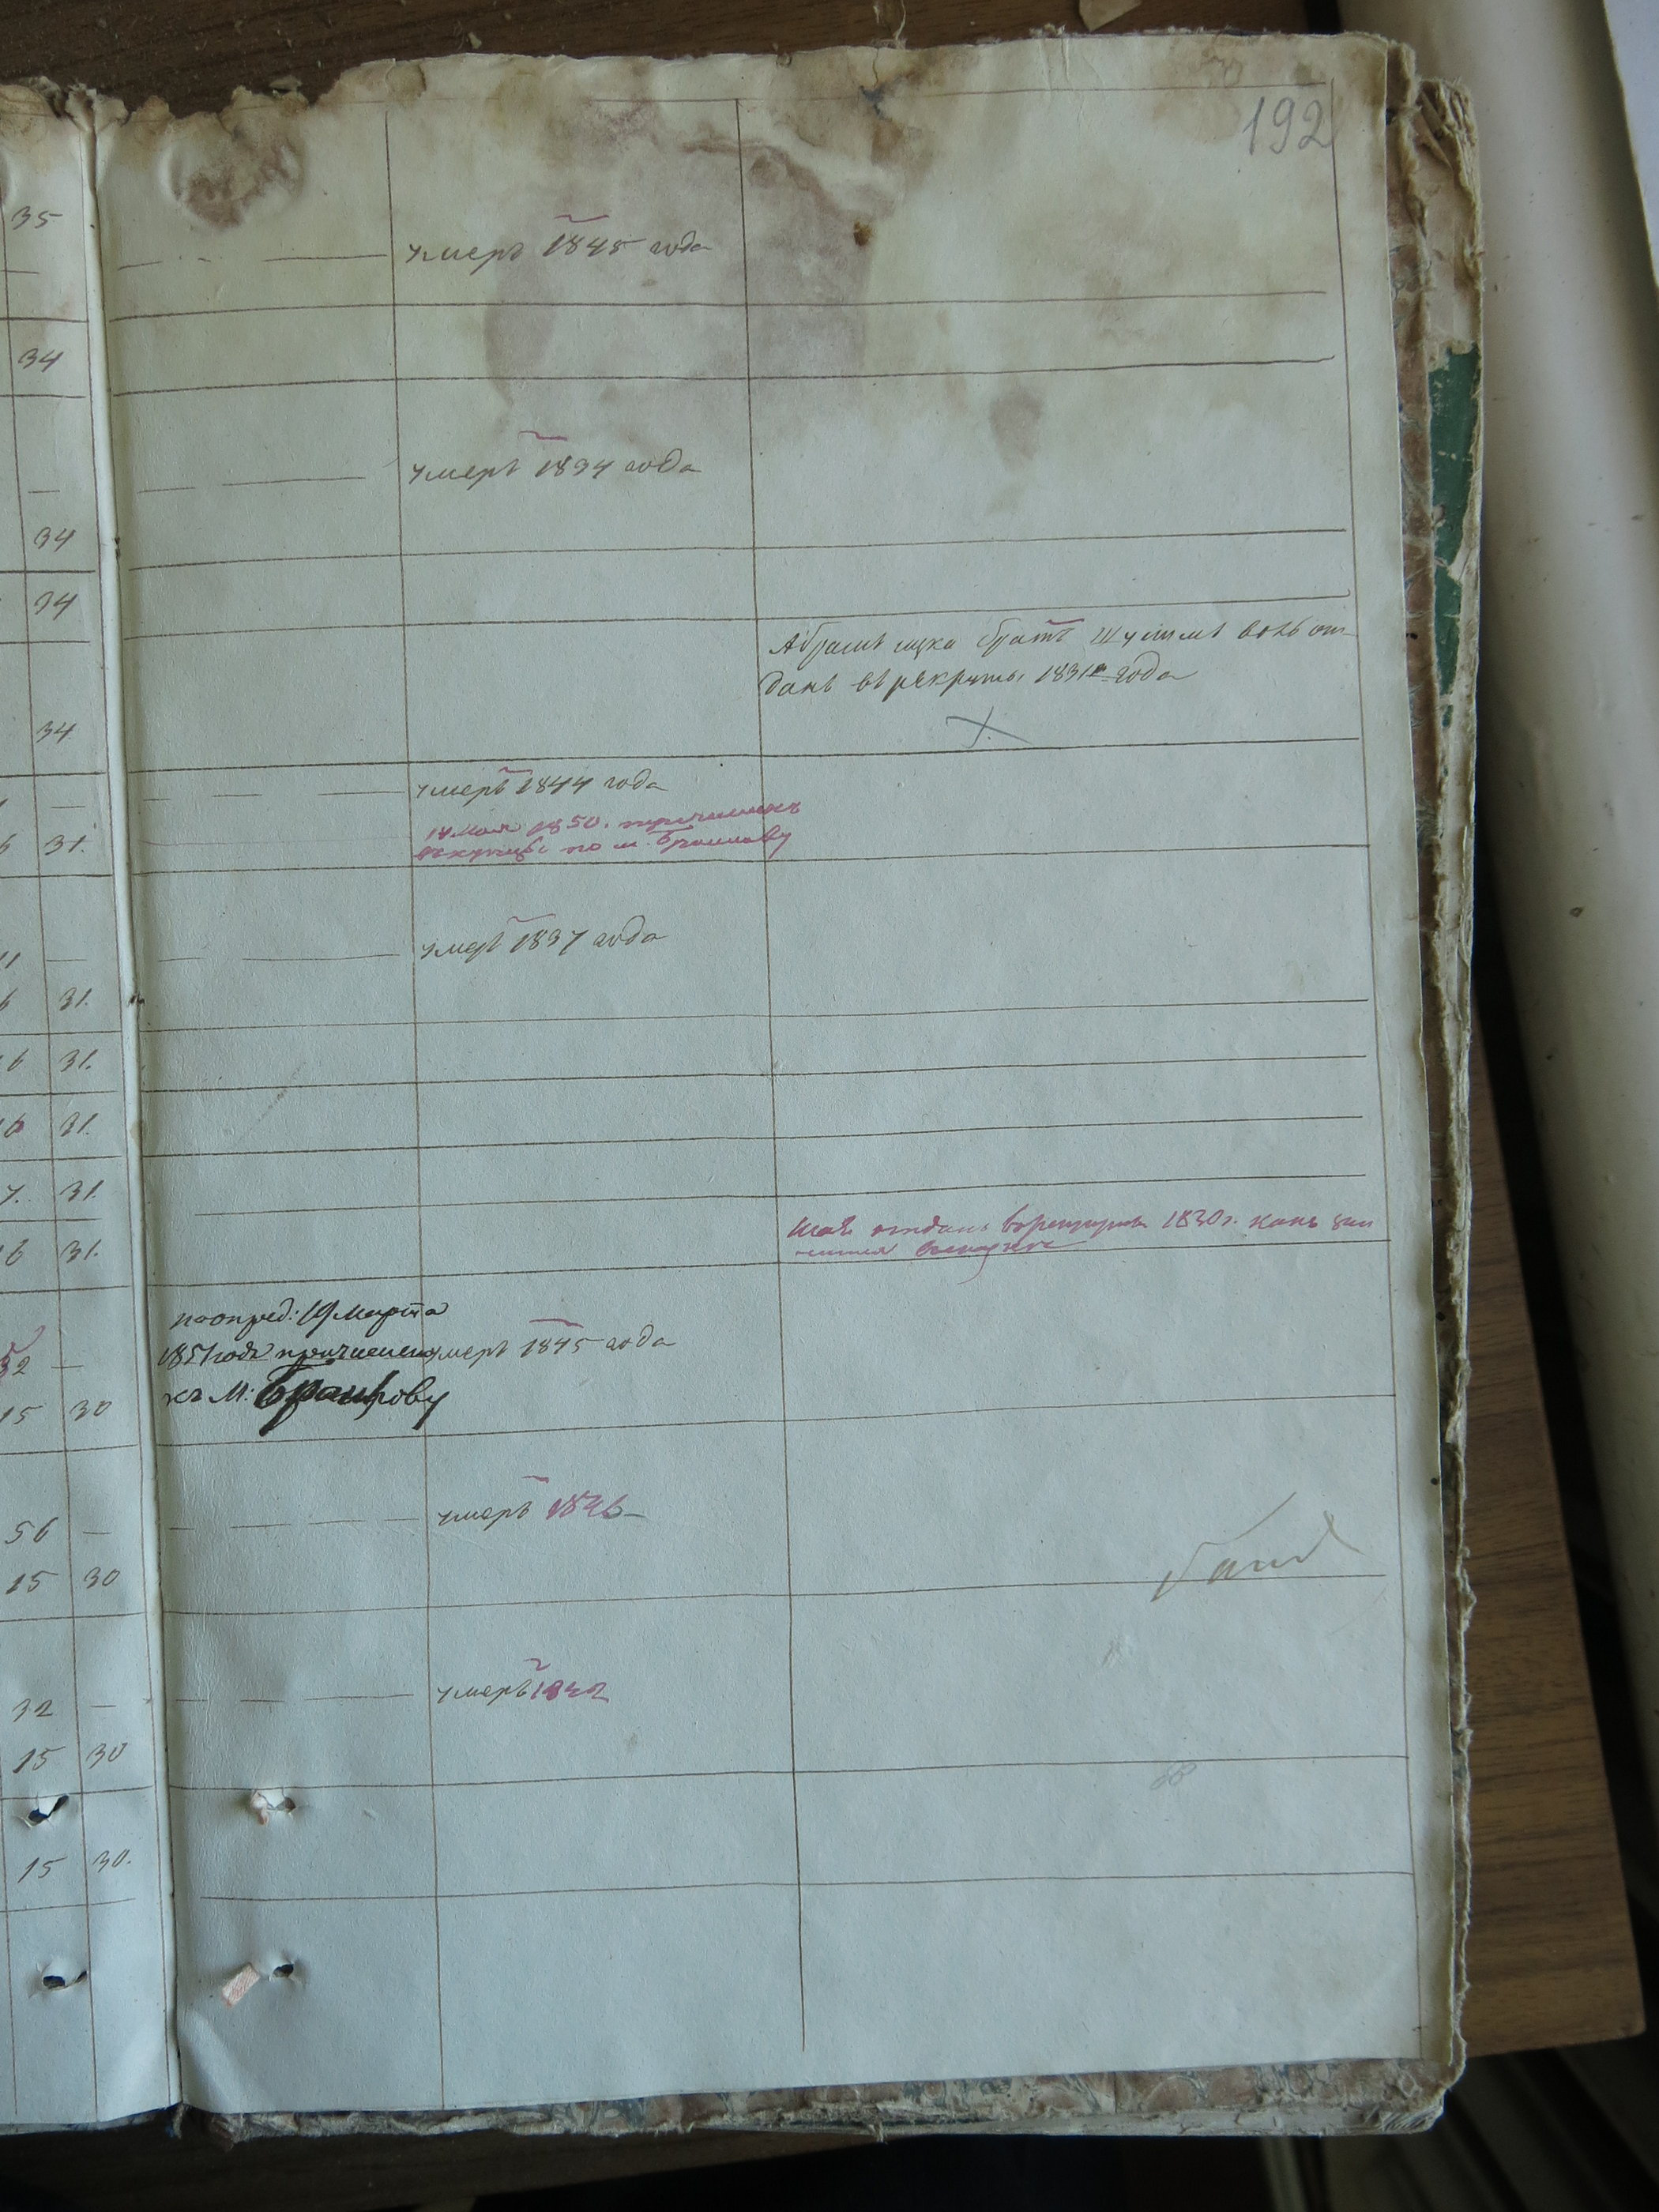 192
35
умеръ 1845 года
34
умеръ 1834 года
34
34
Абрамъ ицка братъ Шулимъ вонъ от-
данъ въ рекруты 1831го года
34
умеръ 1844 года
14 мая 1850. перечисленъ
въ купцы по м. Браилову
31.
умеръ 1837 года
31.
31.
31.
31.
отданъ в рекруты 1830г.
31.
по опред: 19 Марта
1851 года причисленъ
къ М: Браилову
умеръ 1845 года
32
15 30
умеръ 1846
56
15 30
умеръ 1842
32
15 30
15 30.